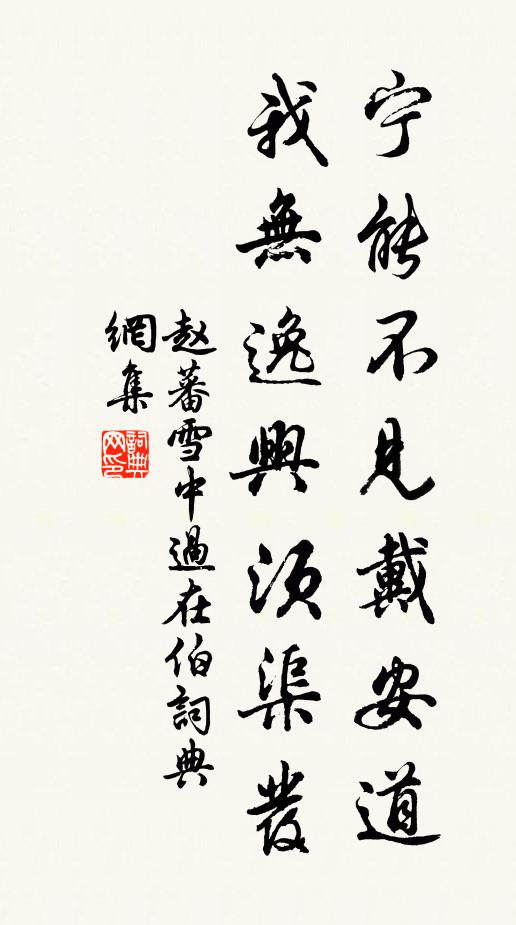 宁能不见戴安道
我無逸興須渠發
赵蕃雪中過在伯詞典
網集
詞典
网印